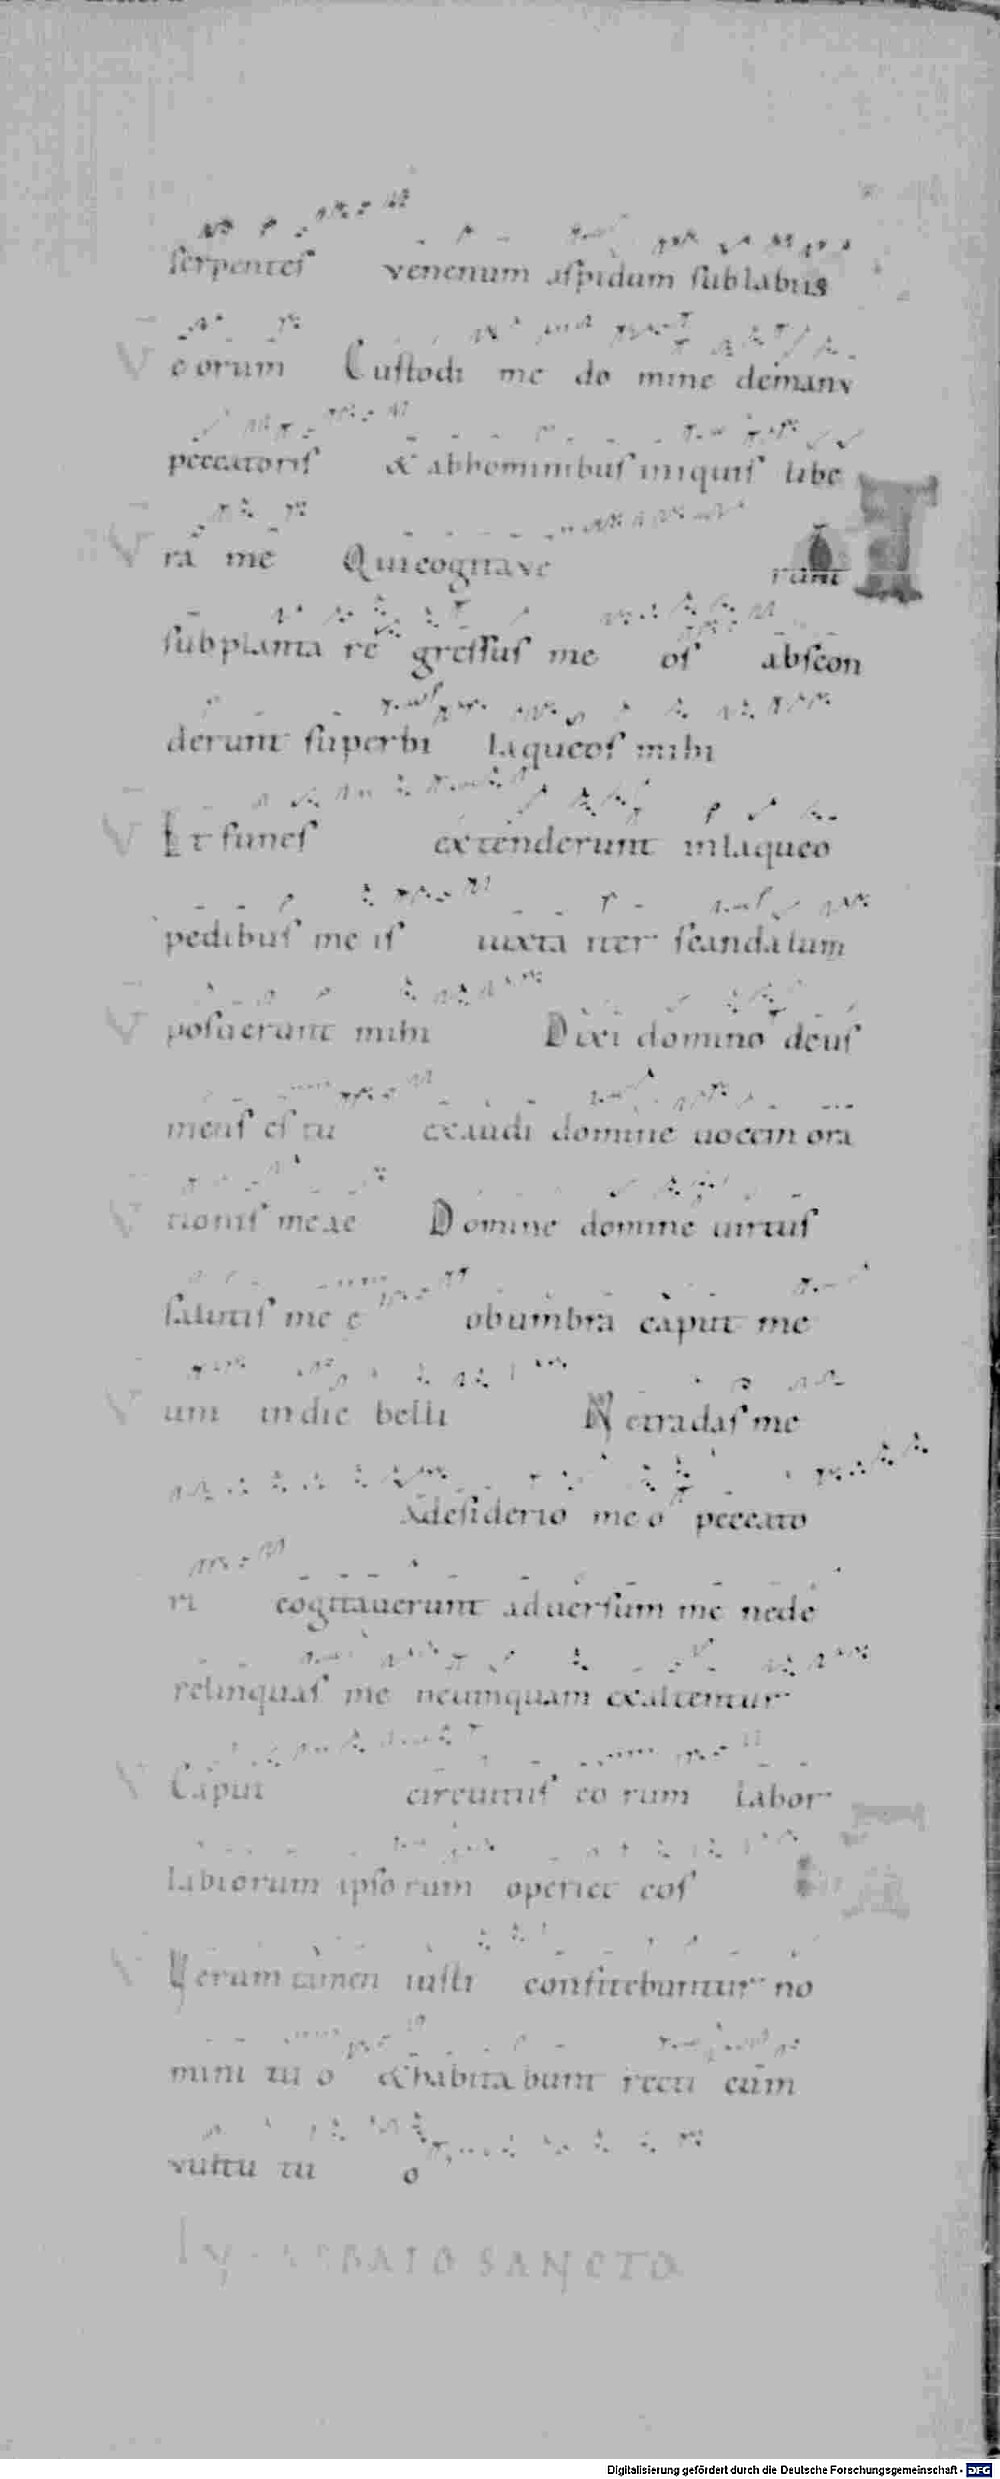 serpentes venenum aspidum sub labus
V eorum Custodi me do mine demanv
peccatoris & abhominibus iniquis libe
V ra me Qui cogitave runt
subplanta re gressus me os abscon
derunt superbi laqueos mihi
V Et funes extenderunt inlaqueo
pedibus me is iuxta iter scandalum
V posuerunt mihi Dixi domino deus
meus es tu exaudi domine uocem ora
V tionis meae Domine domine uirtus
salutis me e obumbra caput me
V um indie belli Ne tradas me
adesiderio me o peccato
ri cogitauerunt aduersum me nede
relinquas me neumquam exaltentur
V Caput circuitus eo rum labor
labiorum ipso rum operiet eos
V Verum tamen iusti confitebuntur no
mini tu o & habita bunt recti cum
vultu tu o
SANCTO
Digitalisierung gefördert durch die Deutsche Forschungsgemeinschaft - DFG